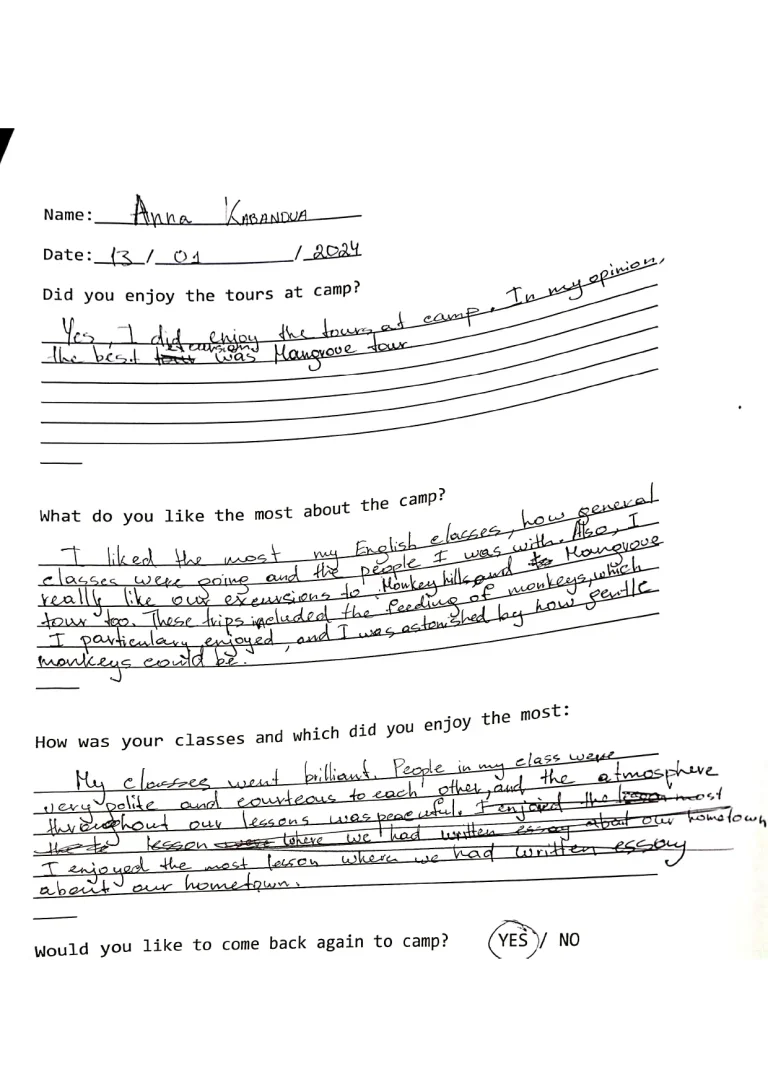 Name: Anna KABANOVA
Date: 13 / 01 / 2024
Did you enjoy the tours at camp?
Yes, I did enjoy the tours at camp. In my opinion,
the best excursion was Mangrove tour
What do you like the most about the camp?
I liked the most my English classes, how general
classes were going and the people I was with. Also, I
really like our excursions to Monkey hills and to Mangrove
tour too. These trips included the feeding of monkeys, which
I particulary enjoyed, and I was astonished by how gentle
monkeys could be.
How was your classes and which did you enjoy the most:
My classes went brilliant. People in my class were
very polite and courteous to each other, and the atmosphere
throughout our lessons was peaceful. I enjoied the lesson most
lesson were where we had written essay about our hometown
I enjoyed the most lesson where we had written essay
about our hometown.
Would you like to come back again to camp? YES / NO